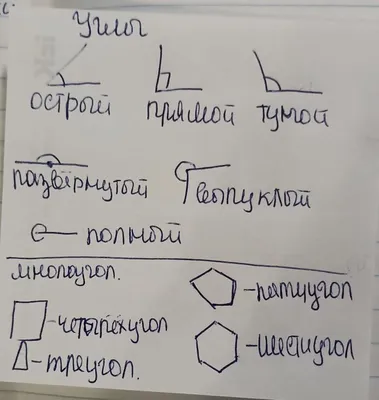 Углы
острый прямой тупой
развёрнутый выпуклый
- полный
многоугол.
- пятиугол
- четырёхугол
- шестиугол
- треугол.